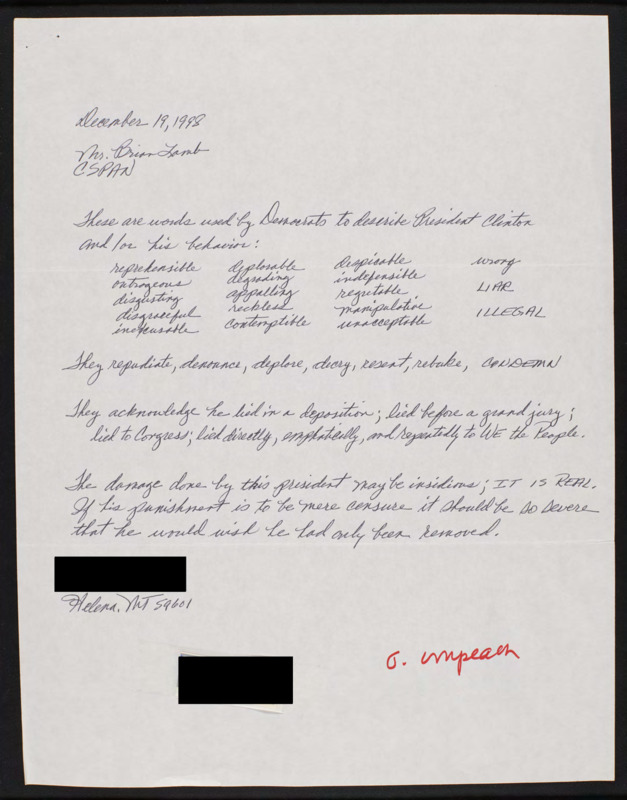 December 19, 1998
Mr. Brian Lamb
CSPAN
These are words used by Democrats to describe President Clinton
and/or his behavior:
reprehensible deplorable despicable wrong
outrageous degrading indefensible
disgusting appalling regretable LIAR
disgraceful reckless manipulative
inexcusable contemptible unacceptable ILLEGAL
They repudiate, denounce, deplore, decry, resent, rebuke, CONDEMN
They acknowledge he lied in a deposition; lied before a grand jury;
lied to Congress; lied directly, emphatically, and repeatedly to WE the People.
The damage done by this president may be insidious; IT IS REAL.
If his punishment is to be mere censure it should be so severe
that he would wish he had only been removed.
Helena, MT 59601
impeach